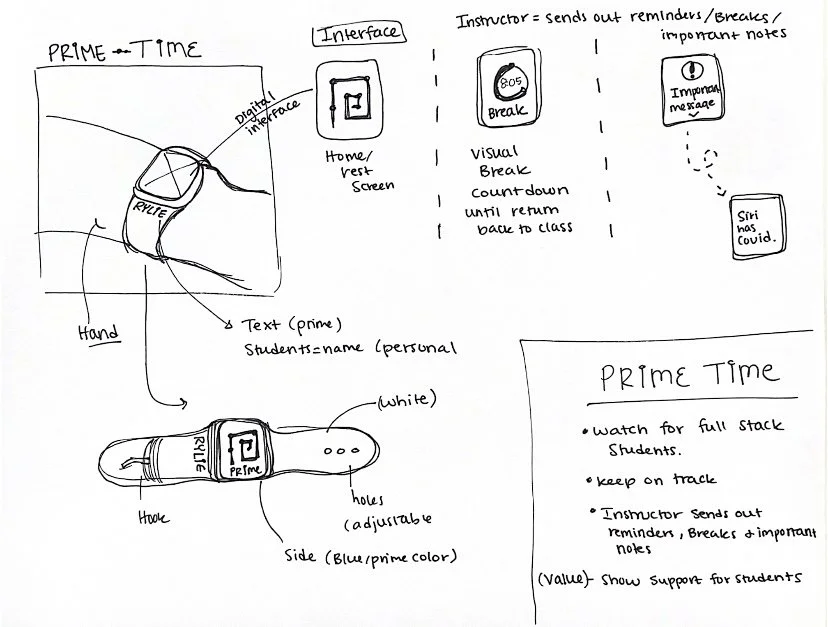 PRIME-TIME
Interface
Instructor = sends out reminders/Breaks/
important notes
Digital
interface
RYLIE
Hand
Text (prime)
Students=name (personal
Home/
rest
Screen
8:05
Break
Visual
Break
countdown
until return
back to class
!
Important
message
Siri
has
Covid.
(white)
RYLIE
PRIME
Hook
holes
(adjustable
Side (Blue/prime color)
PRIME TIME
• Watch for full stack
Students.
• keep on track
• Instructor sends out
reminders, Breaks + important
notes
(Value)- Show support for students